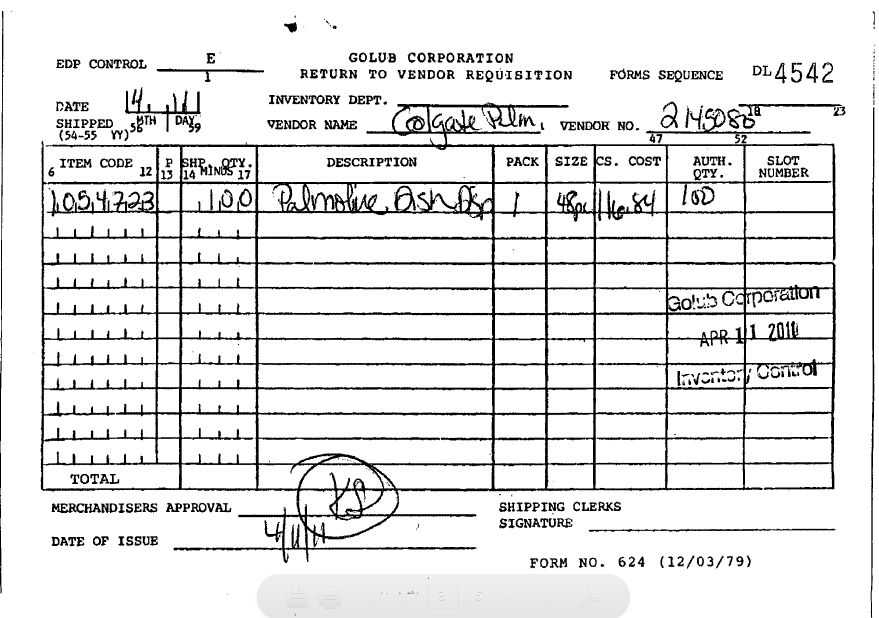 EDP CONTROL E
1
GOLUB CORPORATION
RETURN TO VENDOR REQUISITION
FORMS SEQUENCE DL4542
DATE SHIPPED (54-55 YY) 56 MTH DAY 59
INVENTORY DEPT.
18 23
VENDOR NAME Colgate Palm. VENDOR NO.
47 52
6 ITEM CODE 12 P 13 SHP. QTY. 14 MINUS 17 DESCRIPTION PACK SIZE CS. COST AUTH. QTY. SLOT NUMBER
1054723 100 Palmolive Dish Dsp 1 48pc 116.84 100
Golub Corporation
APR 11 2011
Inventory Control
TOTAL
MERCHANDISERS APPROVAL KS
SHIPPING CLERKS
SIGNATURE
DATE OF ISSUE 4/11/11
FORM NO. 624 (12/03/79)